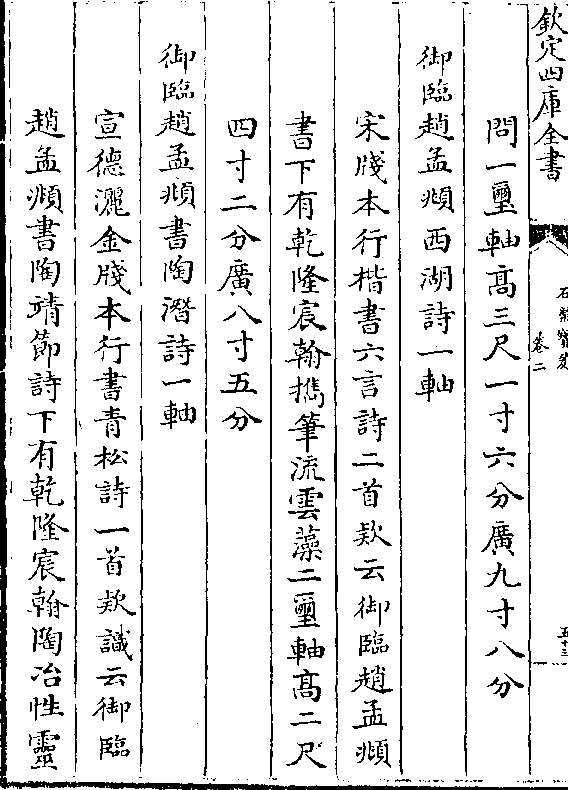 欽定四庫全書
石渠寳笈
卷二
五十三
問一璽軸髙三尺一寸六分廣九寸八分
御臨趙孟頫西湖詩一軸
宋牋本行楷書六言詩二首欵云御臨趙孟頫
書下有乾隆宸翰擕筆流雲藻二璽軸髙二尺
四寸二分廣八寸五分
御臨趙孟頫書陶潛詩一軸
宣德灑金牋本行書青松詩一首欵識云御臨
趙孟頫書陶靖節詩下有乾隆宸翰陶冶性靈